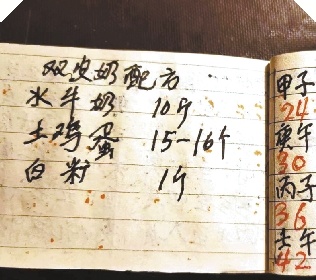 双皮奶配方
水牛奶 10斤
土鸡蛋 15-16个
白糖 1斤
甲子
24
庚午
30
丙子
36
壬午
42